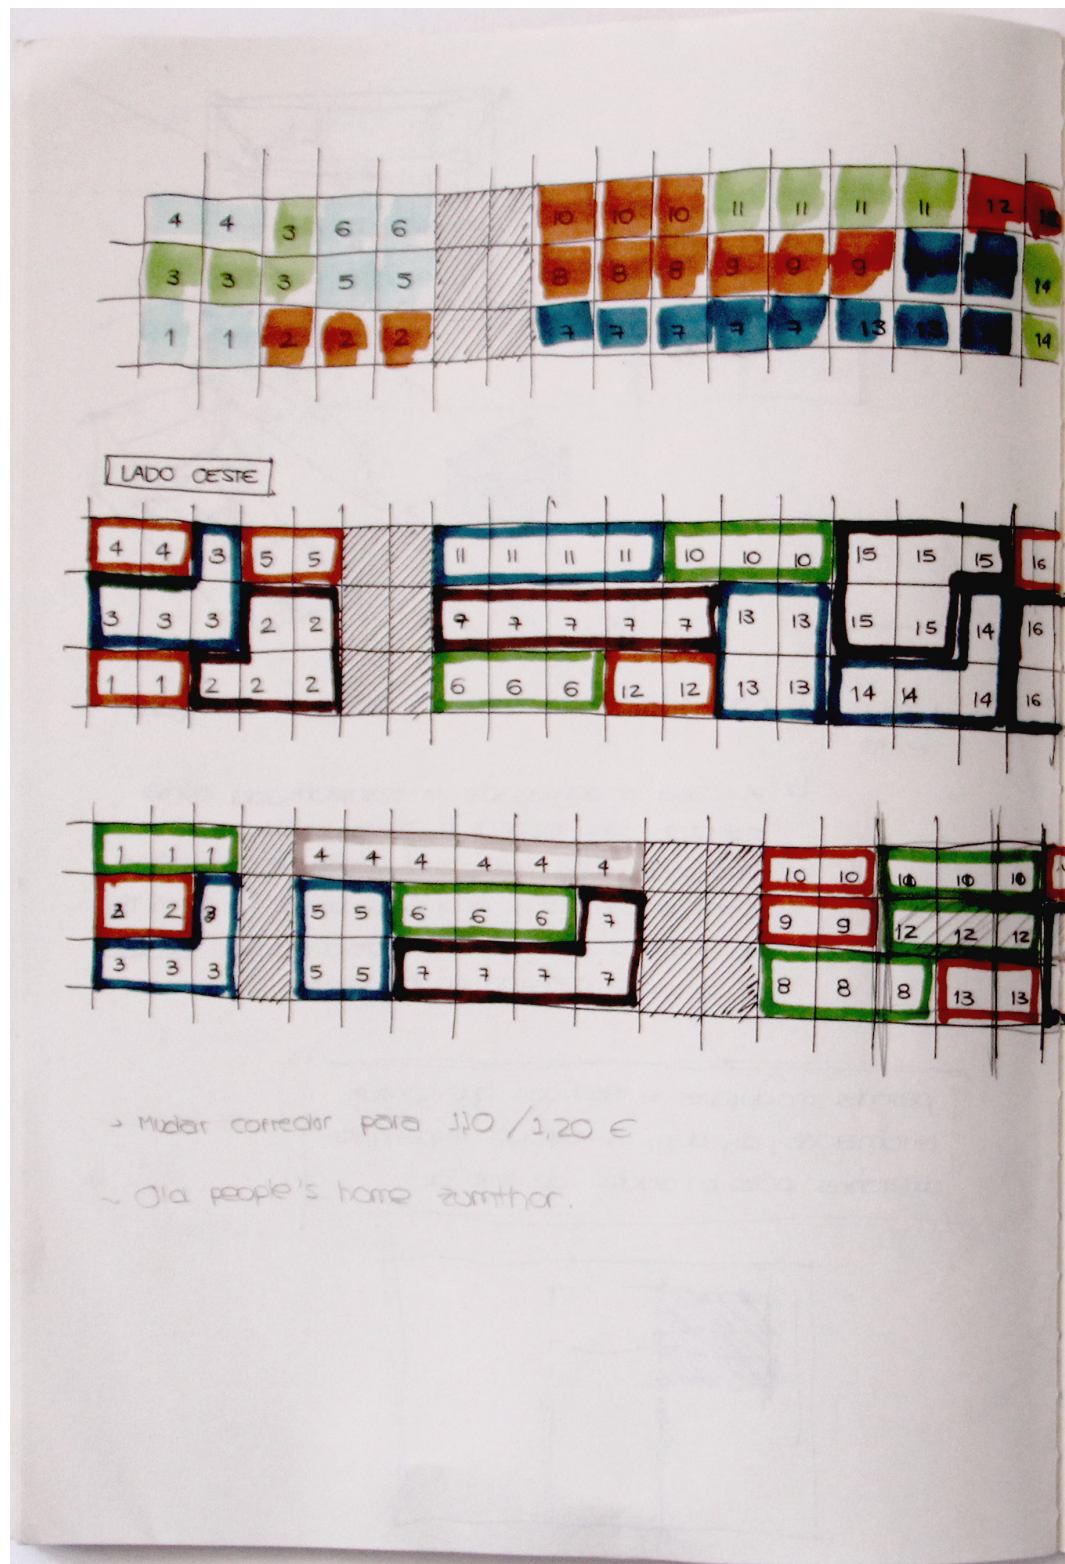 4 4 3 6 6 10 10 10 11 11 11 11 12
3 3 3 5 5 8 8 8 9 9 9 14
1 1 2 2 2 7 7 7 7 7 13 13 14
LADO OESTE
4 4 3 5 5 11 11 11 11 10 10 10 15 15 15 16
3 3 3 2 2 7 7 7 7 7 13 13 15 15 14 16
1 1 2 2 2 6 6 6 12 12 13 13 14 14 14 16
1 1 1 4 4 4 4 4 4 10 10 10 10 10
2 2 3 5 5 6 6 6 7 9 9 12 12 12
3 3 3 5 5 7 7 7 7 8 8 8 13 13
→ Mudar corredor para 1,10 / 1,20 €
~ Old people's home zumthor.